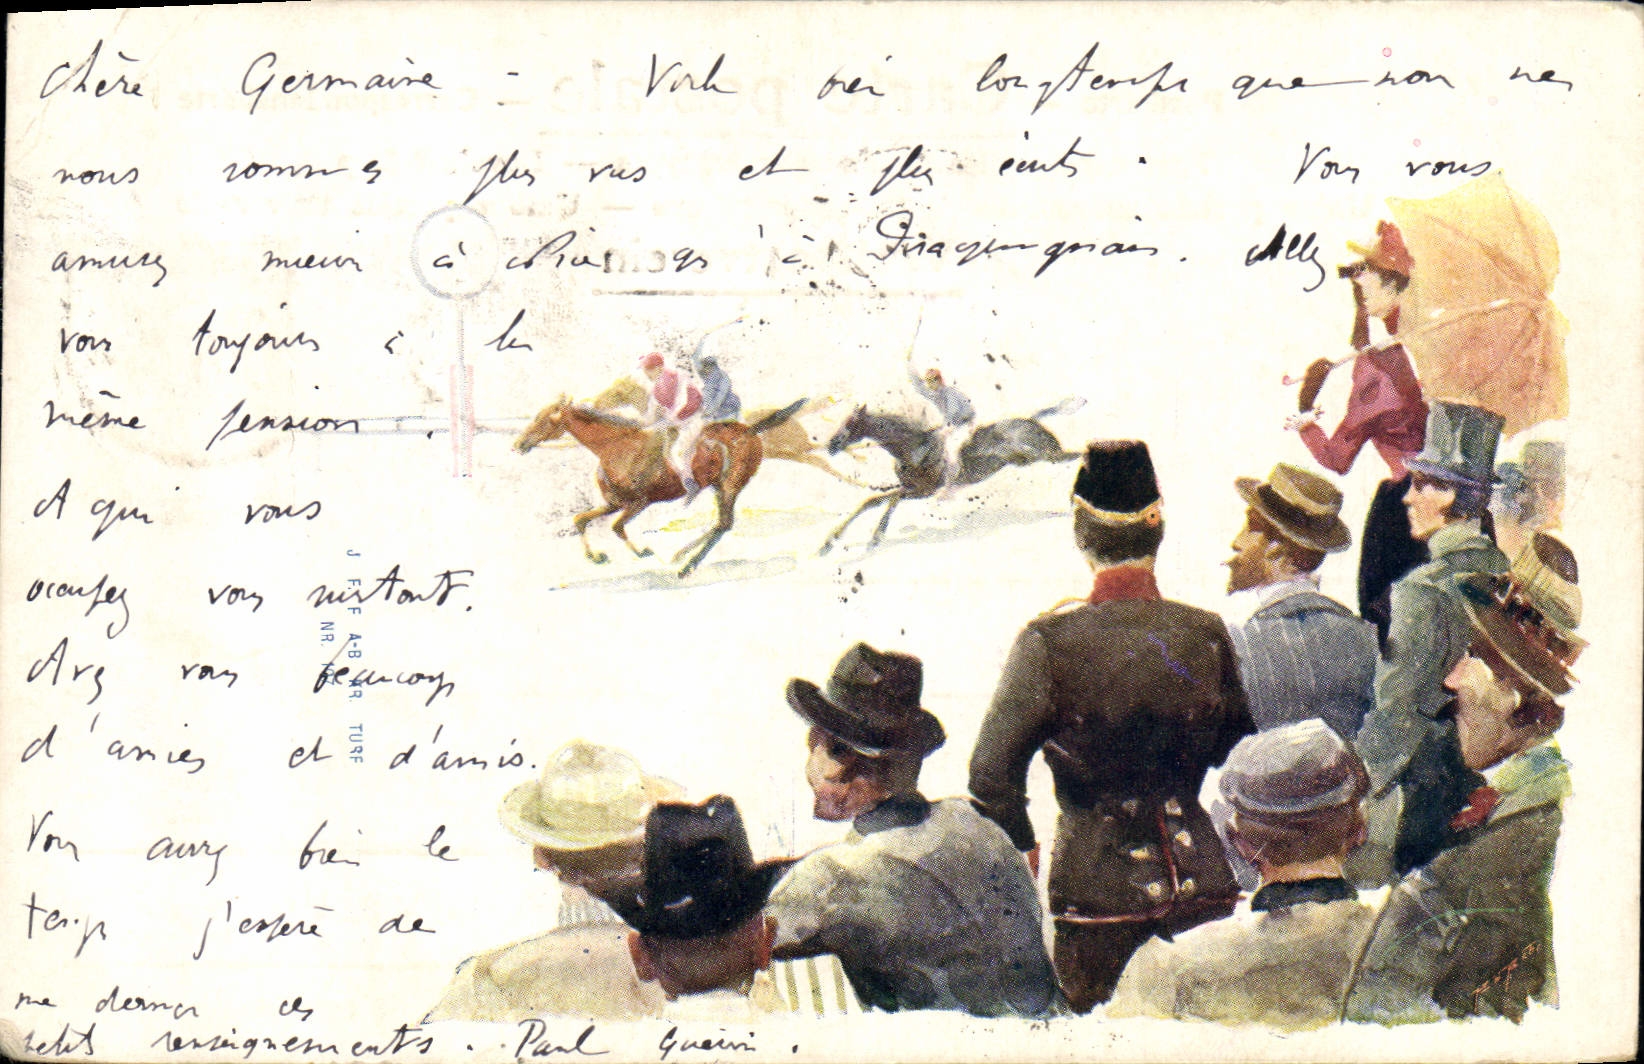 Chère Germaine - Voila bien longtemps que nous ne
nous sommes plus vus et plus écrits. Vous vous
amusez mieux à qu'à. Allez
vous toujours à la
même pension.
A qui vous
occupez vous instants.
Avez vous beaucoup
d'amies et d'amis.
Vous aurez bien le
temps j'espère de
me donner ces
petits renseignements. Paul Guérin.
J F F A-B AR. TURF
NR.